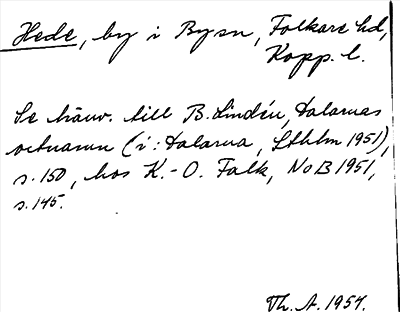 Hede, by i Bysn, Folkare hd,
Kopp. l.
Se hänv. till B. Lindén, Dalarnas
ortnamn (i: Dalarna, Sthlm 1951),
s. 150, hos K.-O. Falk, NoB 1951,
s. 145.
Th. A. 1957.